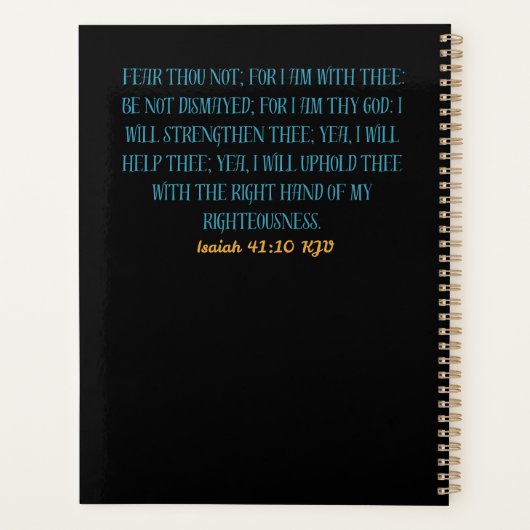 FEAR THOU NOT; FOR I AM WITH THEE:
BE NOT DISMAYED; FOR I AM THY GOD: I
WILL STRENGTHEN THEE; YEA, I WILL
HELP THEE; YEA, I WILL UPHOLD THEE
WITH THE RIGHT HAND OF MY
RIGHTEOUSNESS.
Isaiah 41:10 KJV